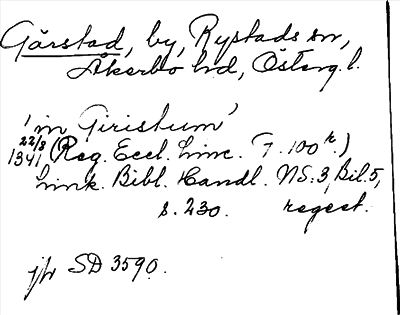 Gärstad, by, Rystads sn,
Åkerbo hd, Österg. l.
'in Giristum'
22/8
1341 (Reg. Eccl. Linc. 7. 100 r.)
Link. Bibl. Handl. NS:3, Bil. 5,
s. 230. regest.
jfr SD 3590.